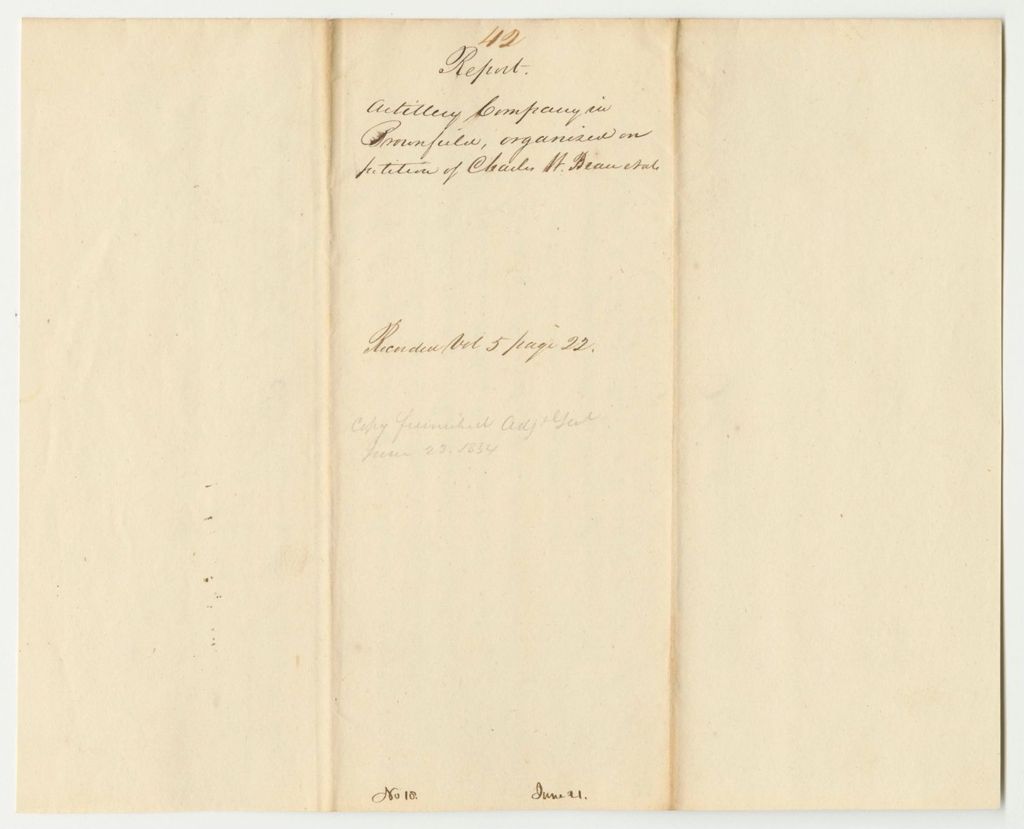 42
Report.
Artillery Company in
Brownfield, organized on
petition of Charles H. Bean et als
Recorded Vol 5 page 22.
Copy furnished Adjt Genl
June 23. 1834
No 18.
June 21.